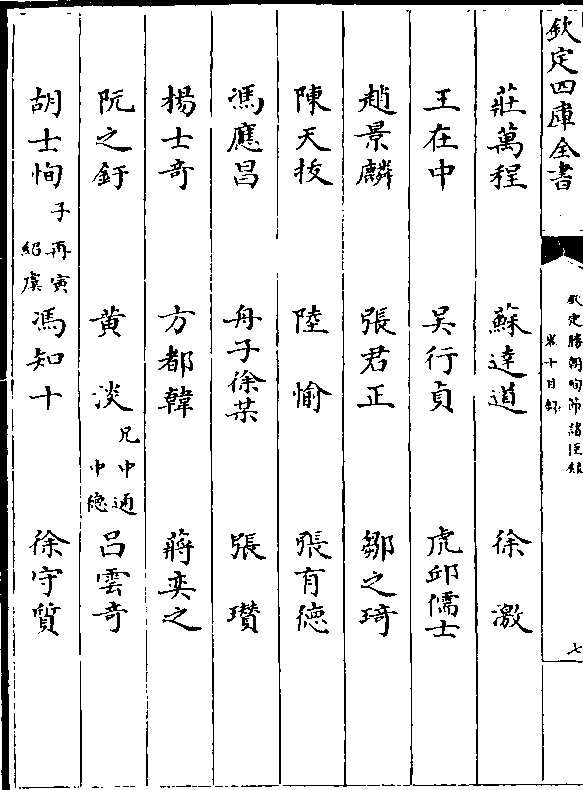 欽定四庫全書
欽定勝朝殉節諸臣錄
卷十目錄
七
莊萬程　蘇達道　徐激
王在中　吴行貞　虎邱儒士
趙景麟　張君正　鄒之琦
陳天拔　陸愉　張有德
馮應昌　舟子徐某　張瓚
楊士奇　方都韓　蔣奕之
阮之釪　黄淡兄中通中德　吕雲奇
胡士恂子再寅紹虞　馮知十　徐守質